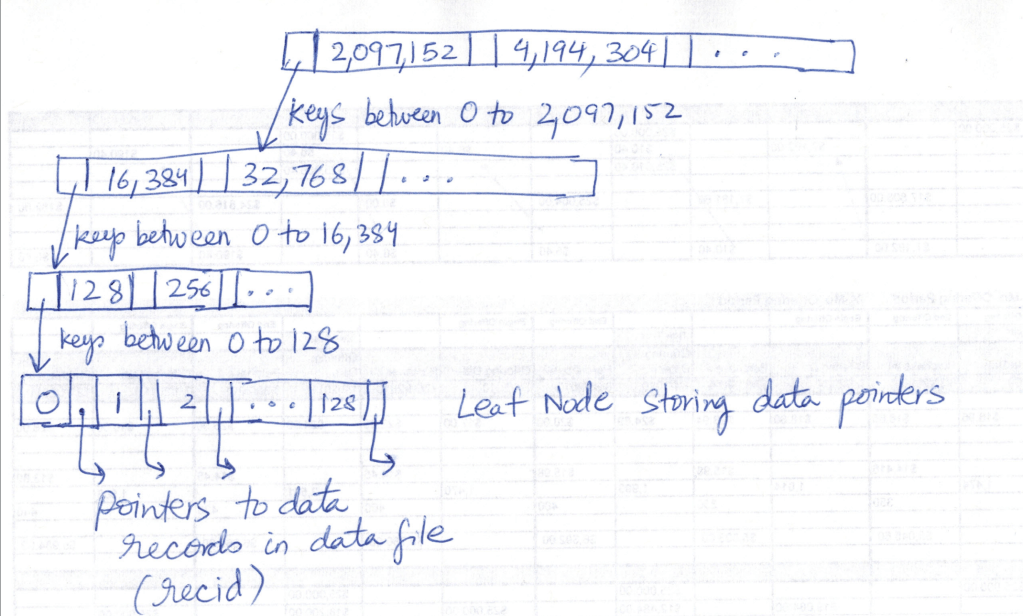 2,097,152 4,194,304 ...
keys between 0 to 2,097,152
16,384 32,768 ...
keys between 0 to 16,384
128 256 ...
keys between 0 to 128
0 1 2 ... 128 Leaf Node storing data pointers
pointers to data
records in data file
(recid)